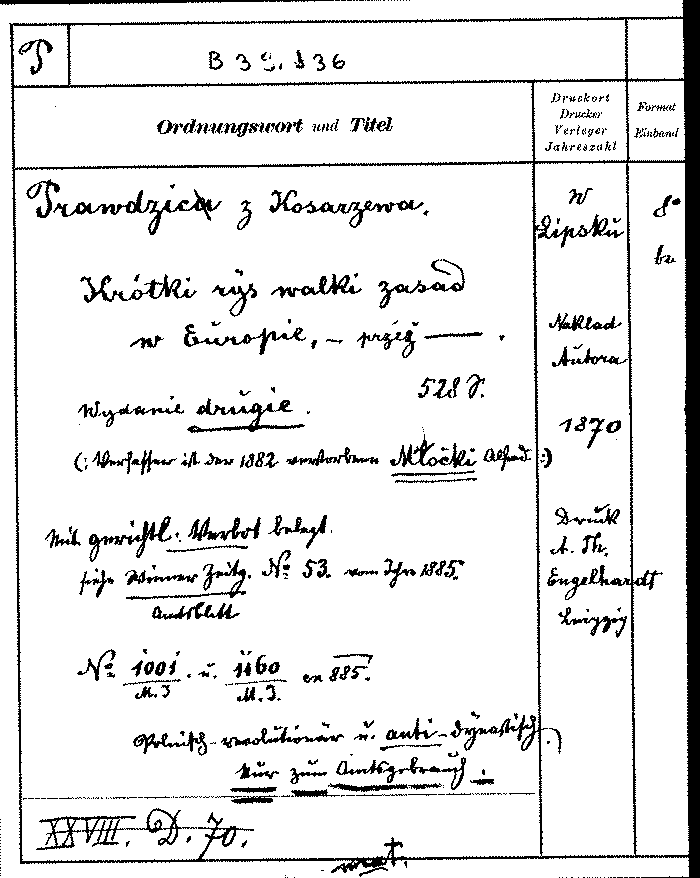 P
B 39.836
Ordnungswort und Titel
Druckort
Drucker
Verleger
Jahreszahl
Format
Einband
Prawdzica z Kosarzewa.
w
Lipsku
8°
br
Krótki rys walki zasad
w Europie, – przez —— .
Nakład
Autora
Wydanie drugie.
528 S.
1870
(: Verfasser ist der 1882 verstorbene Młocki Alfred :)
Mit gerichtl. Verbot belegt.
siehe Wiener Zeitg. No. 53. vom Jhre 1885.
Amtsblatt
Druck
A. Th.
Engelhardt
Leipzig
No. 1001 u. 1160 885.
M. I M. I.
Polnisch-revolutionär u. anti-dynastisch.
Nur zum Amtsgebrauch.
XXVIII. D. 70.